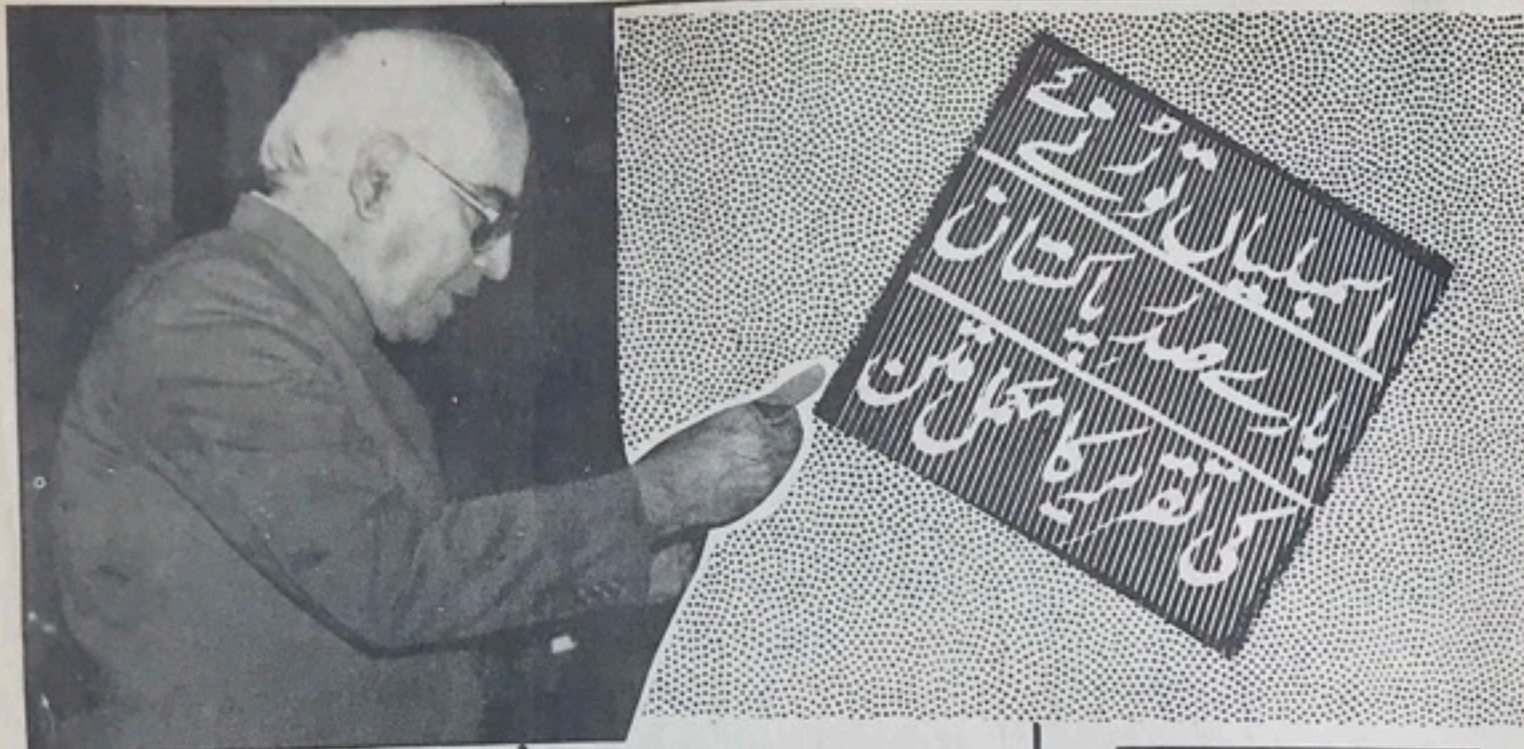 اسمبلیاں توڑنے کے
بارے صدر پاکستان
کی تقریر کا مکمل متن